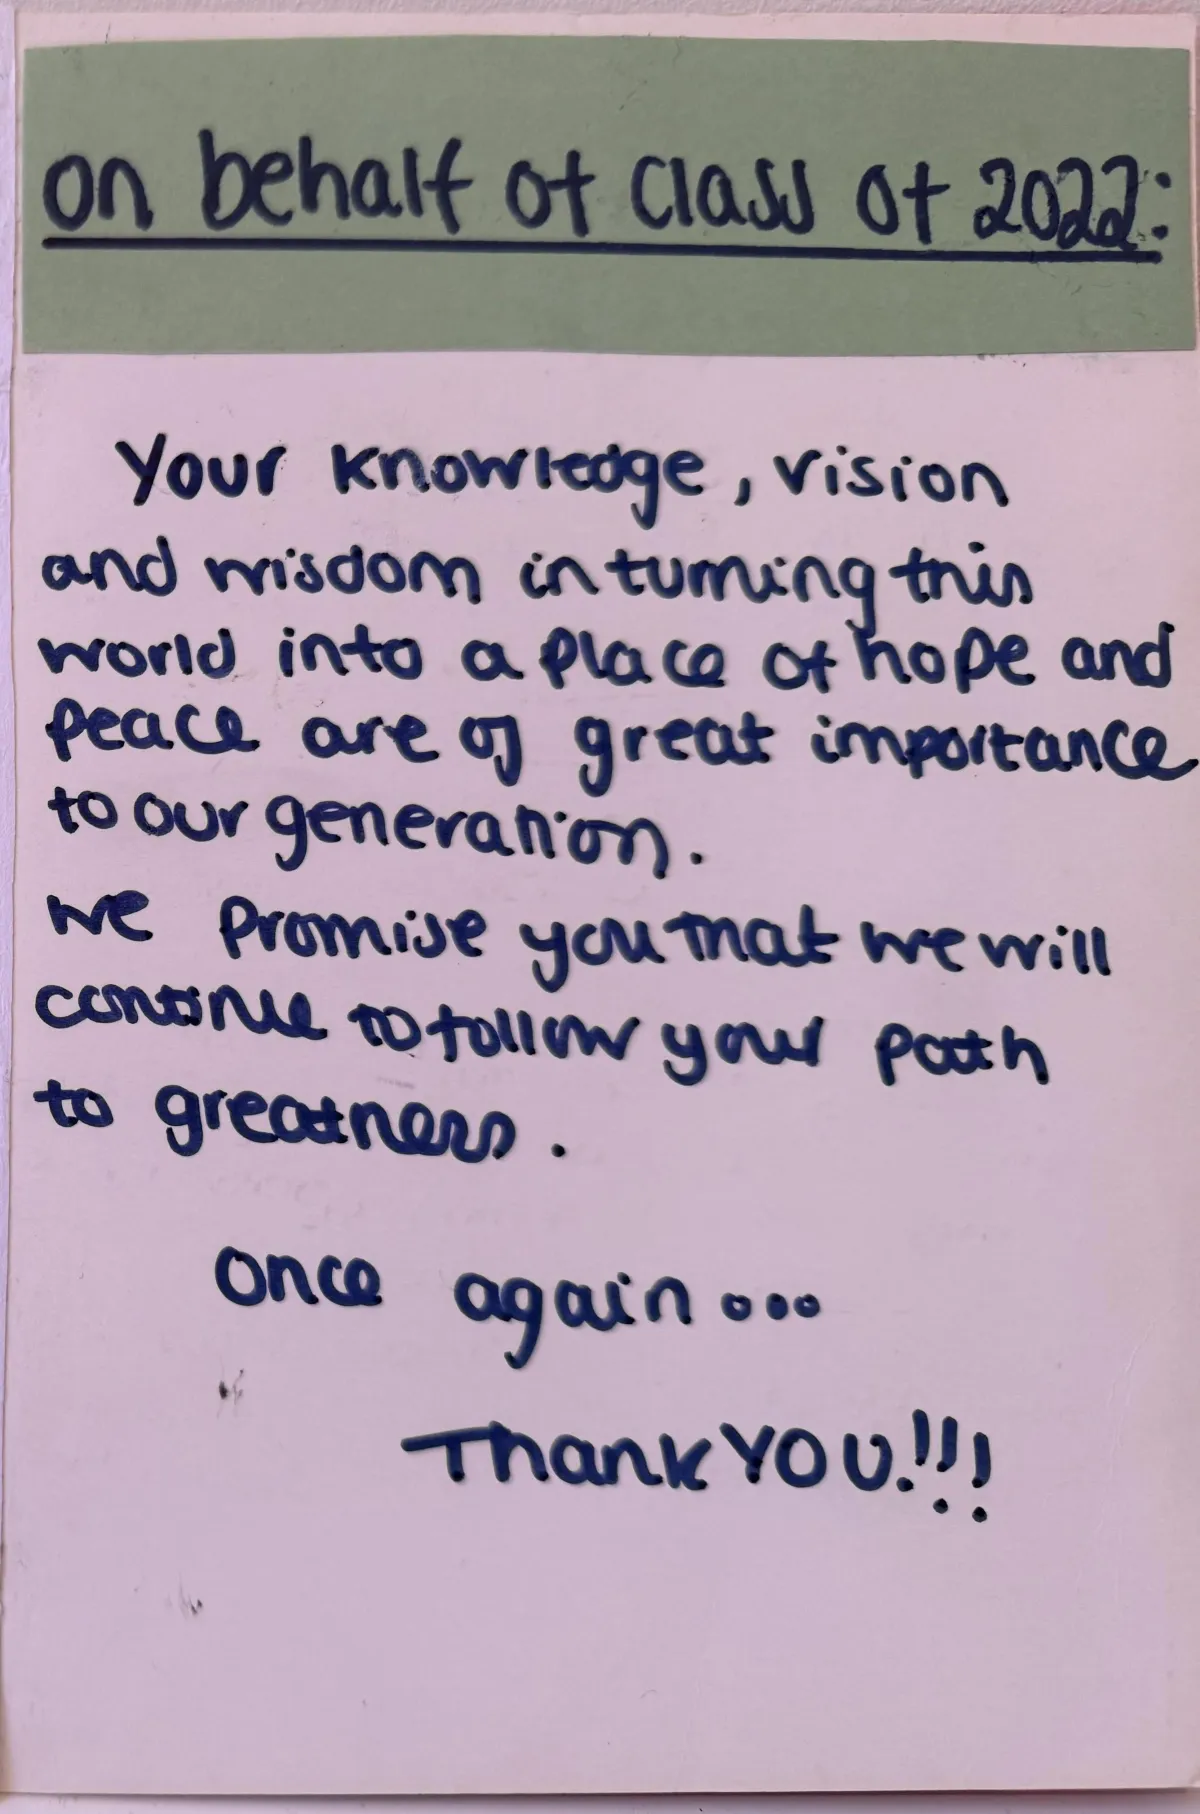 on behalf of class of 2022:
Your knowledge, vision
and wisdom in turning this
world into a place of hope and
peace are of great importance
to our generation.
we promise you that we will
continue to follow your path
to greatness.
once again...
Thank YOU!!!